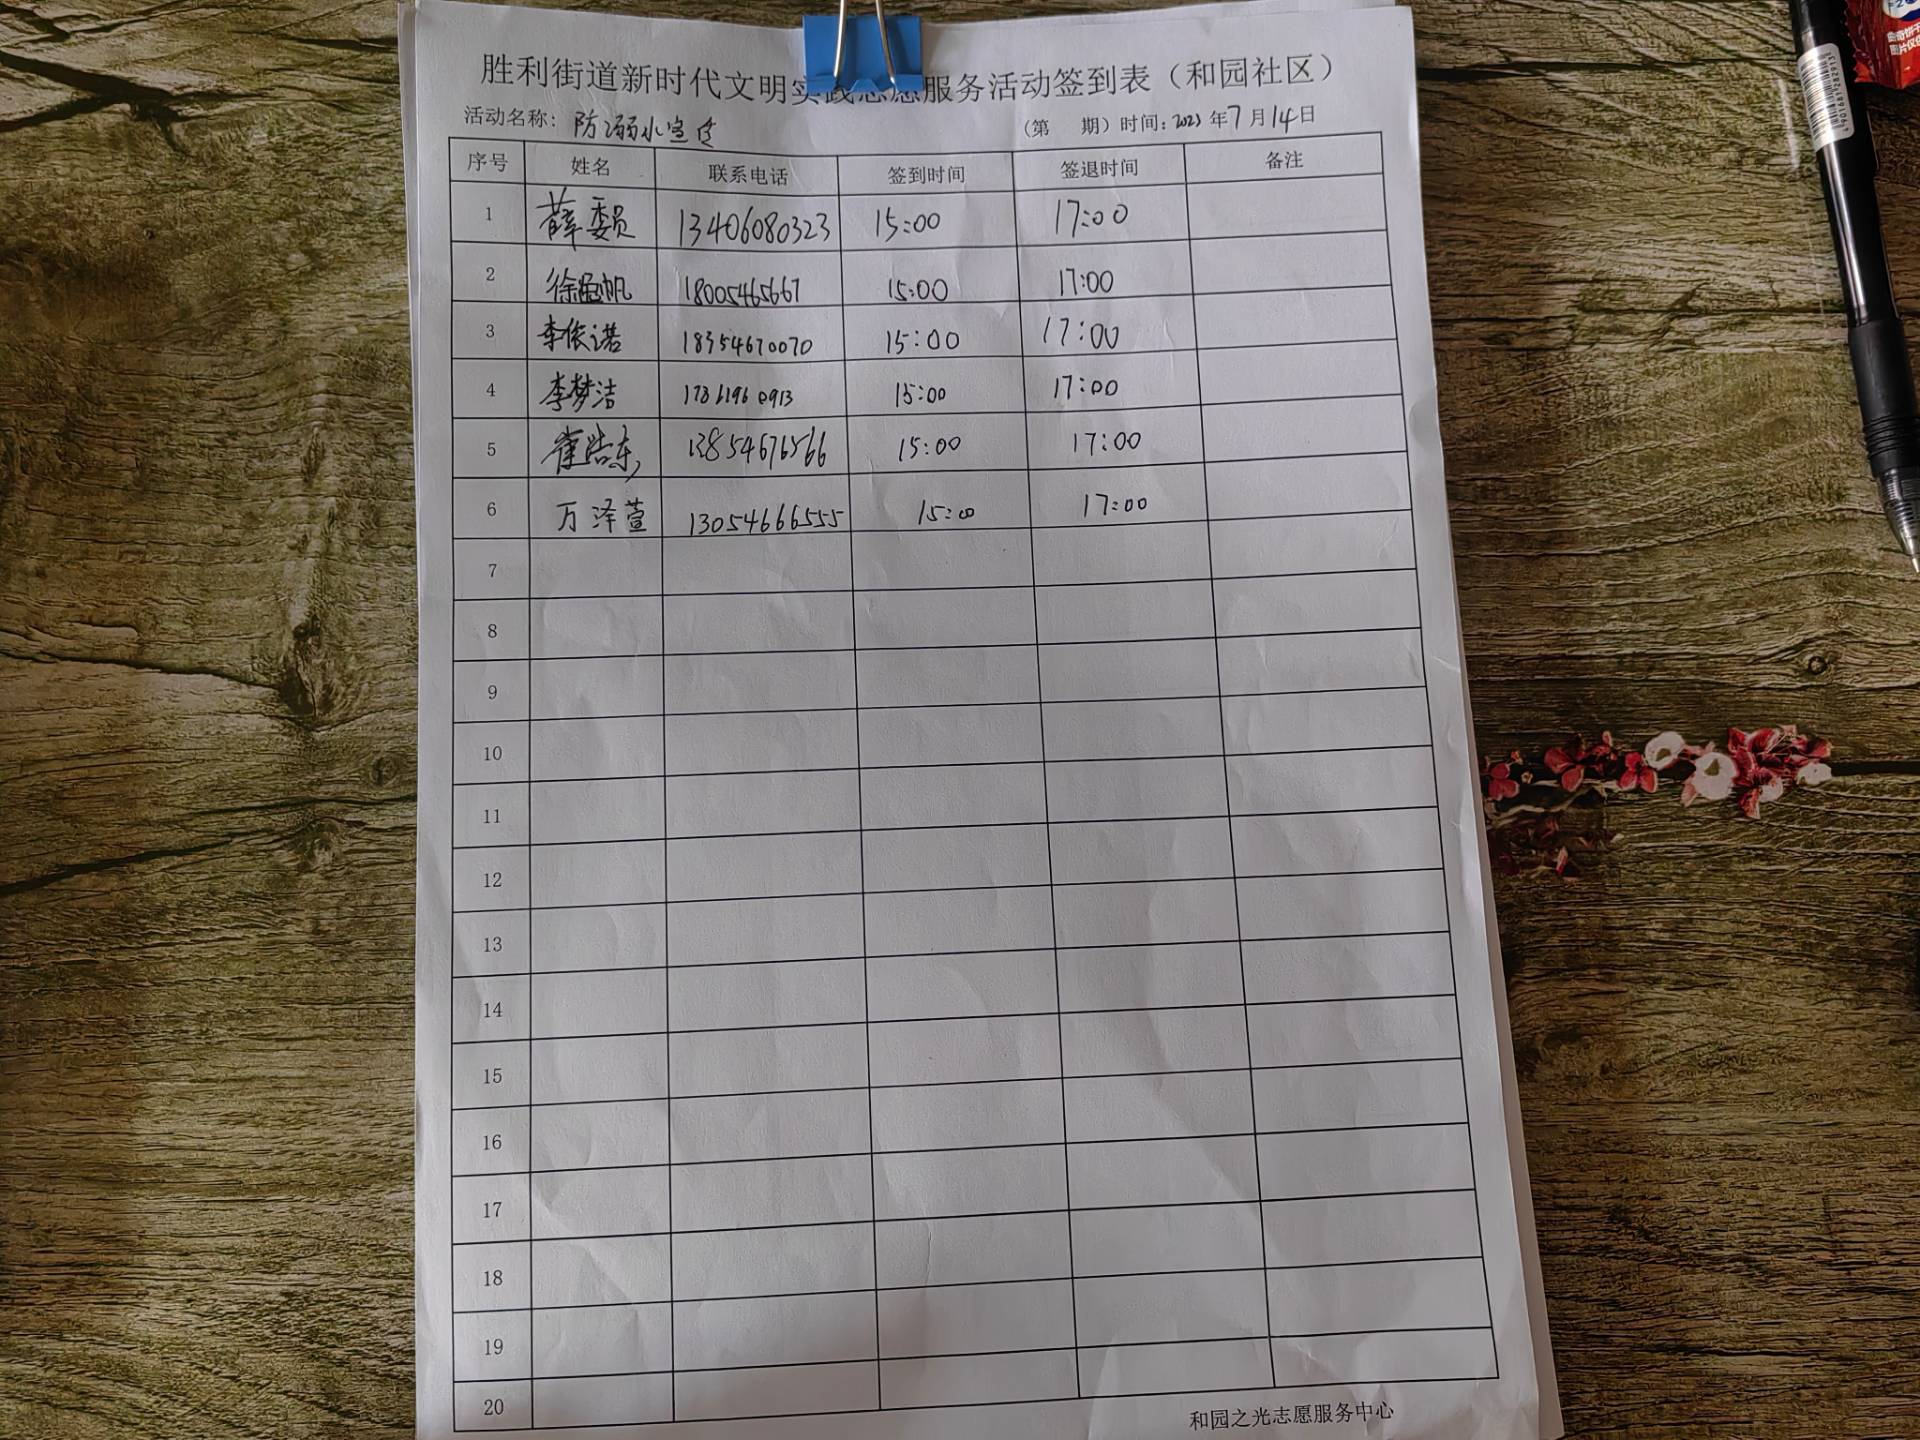 胜利街道新时代文明实践志愿服务活动签到表（和园社区）
活动名称：防溺水宣传 （第 期）时间：2023年7月14日
序号 姓名 联系电话 签到时间 签退时间 备注
1 薛委员 13406080323 15:00 17:00
2 徐 帆 18005465667 15:00 17:00
3 李俊诺 18354670070 15:00 17:00
4 李梦洁 15:00 17:00
5 崔浩东 13854676566 15:00 17:00
6 万泽萱 13054666555 15:00 17:00
7
8
9
10
11
12
13
14
15
16
17
18
19
20
和园之光志愿服务中心
6901681282913